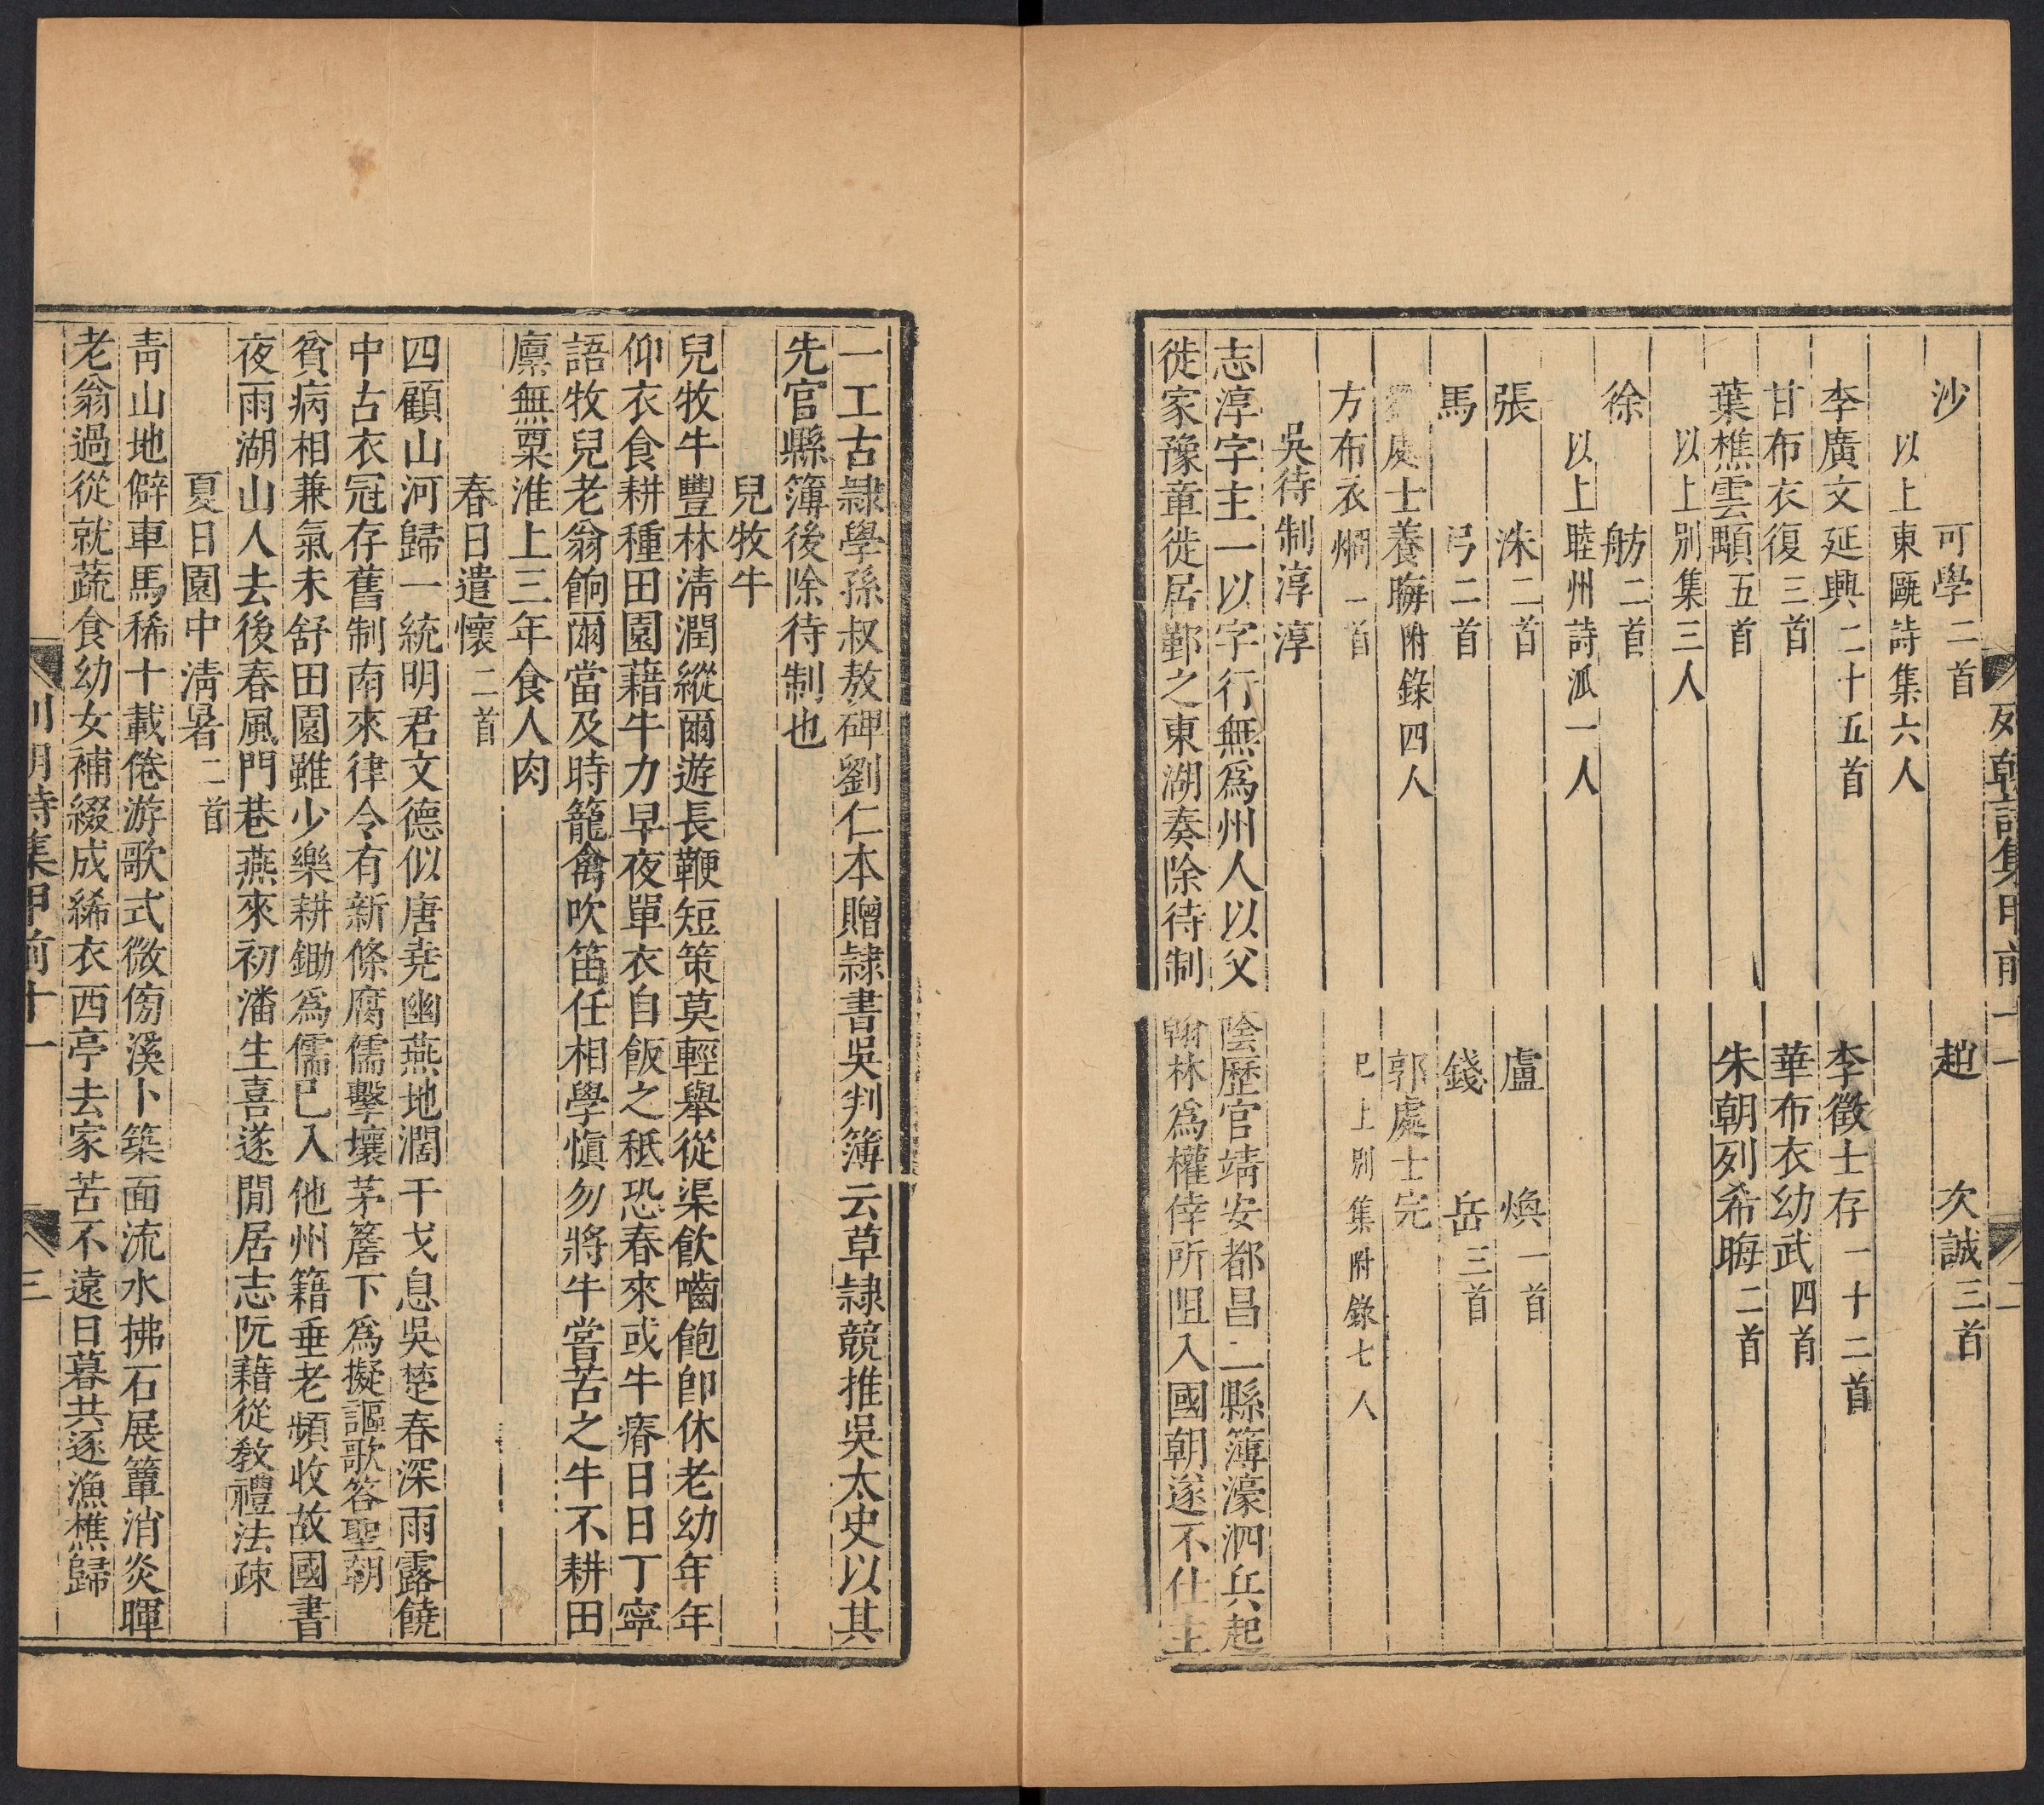 列朝詩集甲前十一 二
沙 可學二首 趙 次誠三首
以上東甌詩集六人
李廣文延興二十五首 李徵士存一十二首
甘布衣復三首 華布衣幼武四首
葉樵雲顒五首 朱朝列希晦二首
以上別集三人
徐 舫二首
以上睦州詩派一人
張 洙二首 盧 煥一首
馬 弓二首 錢 岳三首
處士養晦附錄四人 郭處士完
方布衣炯一首 已上別集附錄七人
吳待制淳淳
志淳字主一以字行無爲州人以父陰歷官靖安都昌二縣簿濠泗兵起
徙家豫章徙居鄞之東湖奏除待制翰林爲權倖所阻入國朝遂不仕主
一工古隷學孫叔敖碑劉仁本贈隷書吳判簿云草隷競推吳太史以其
先官縣簿後除待制也
兒牧牛
兒牧牛豐林淸潤縱爾遊長鞭短策莫輕舉從渠飲嚙飽卽休老幼年年
仰衣食耕種田園藉牛力早夜單衣自飯之秪恐春來或牛瘠日日丁寧
語牧兒老翁餉爾當及時籠禽吹笛任相學愼勿將牛嘗苦之牛不耕田
廪無粟淮上三年食人肉
春日遣懷二首
四顧山河歸一統明君文德似唐堯幽燕地濶干戈息吳楚春深雨露饒
中古衣冠存舊制南來律令有新條腐儒擊壤茅簷下爲擬謳歌答聖朝
貧病相兼氣未舒田園雖少樂耕鋤爲儒已入他州籍垂老頻收故國書
夜雨湖山人去後春風門巷燕來初潘生喜遂閒居志阮藉從敎禮法疎
夏日園中淸暑二首
靑山地僻車馬稀十載倦游歌式微傍溪卜築面流水拂石展簟消炎暉
老翁過從就蔬食幼女補綴成絺衣西亭去家苦不遠日暮共逐漁樵歸
列朝詩集甲前十一 三